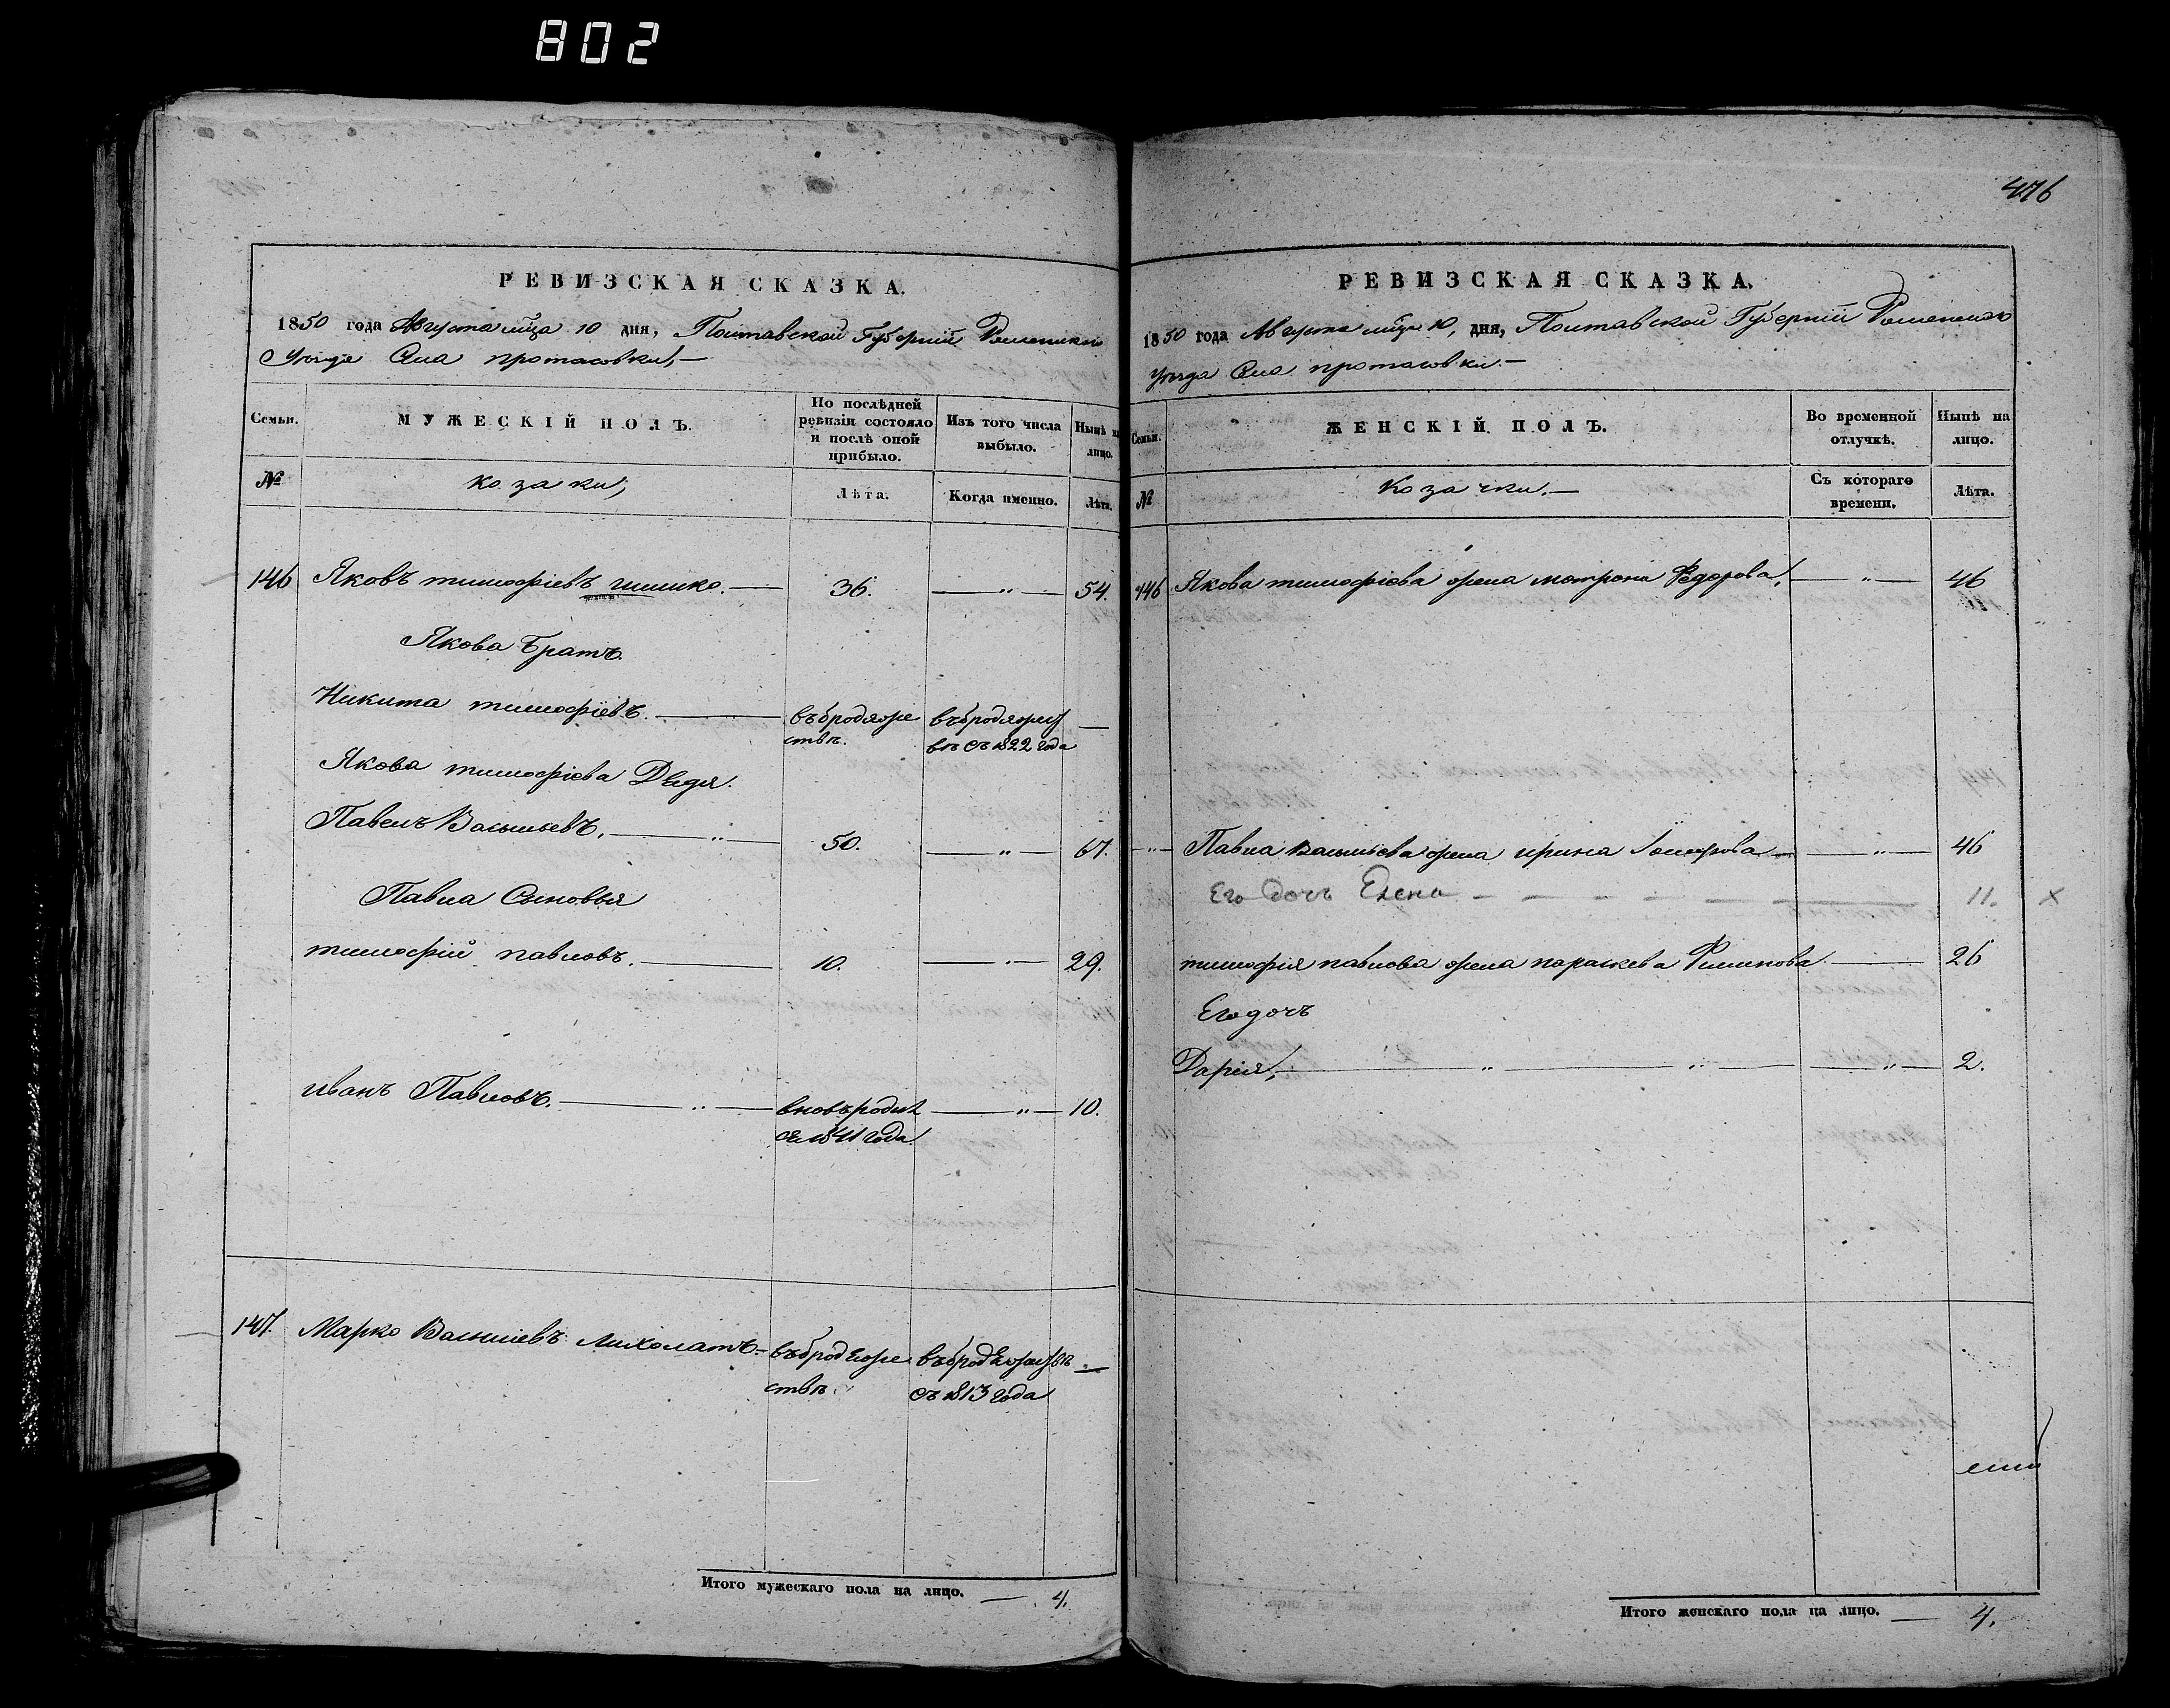 802
РЕВИЗСКАЯ СКАЗКА.
1850 года Августа мца 10 дня, Полтавской Губерніи Роменскаго
Уѣзда Села протасовки,—
Семьи.
МУЖЕСКІЙ ПОЛЪ.
По послѣдней ревизіи состояло и послѣ оной прибыло.
Изъ того числа выбыло.
Нынѣ на лицо.
№
козаки;
Лѣта.
Когда именно.
Лѣта.
146 Яковъ тимофіевъ шишко.— 36. —"— 54.
Якова Братъ.
Никита тимофіевъ.— въ бродяже въ бродяжес —
ствѣ. вѣ съ 1822 года
Якова тимофіева Дядя.
Павелъ Васильевъ.—"— 50. —"— 67.
Павла Сыновья
тимофій павловъ.— 10. —"— 29.
иванъ Павловъ.—"— вновь родил —"— 10.
ся 1841 года.
147. Марко Васильевъ Лихолатъ— въ бродяже въ бродяжествѣ "—
ствѣ. съ 1813 года
Итого мужескаго пола на лицо. — 4.
476
РЕВИЗСКАЯ СКАЗКА.
1850 года Августа мца 10, дня, Полтавской Губерніи Роменскаго
уѣзда Села протасовки.—
Семьи.
ЖЕНСКІЙ ПОЛЪ.
Во временной отлучкѣ.
Нынѣ на лицо.
№
Козачки.—
Съ котораго времени.
Лѣта.
146 Якова тимофіева жена мотрона Федорова,—"— 46
—"— Павла Васильева жена ирина —"— 46
Его дочь Елена — — — — 11. x
тимофія павлова жена параскева Филипова.— 26
Его дочъ
Дарія,—"—"— —"— 2.
Итого женскаго пола на лицо. — 4.